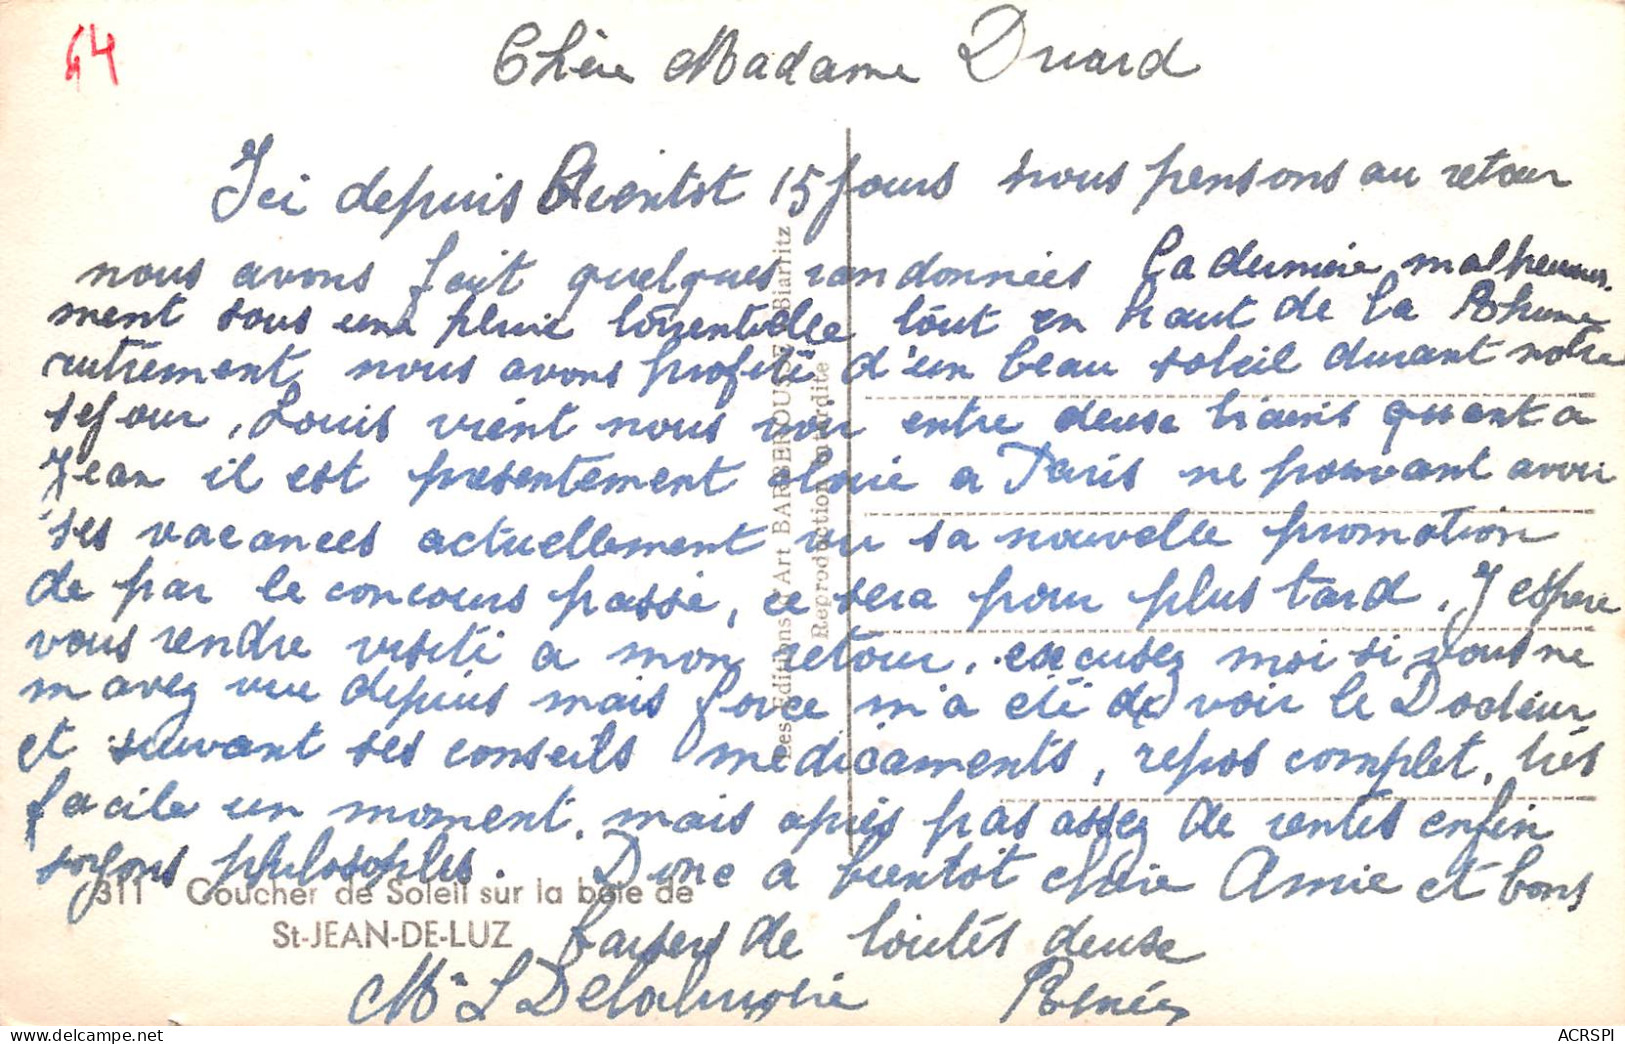 64
Chère Madame Druard
Ici depuis Bientot 15 jours nous pensons au retour
nous avons fait quelques randonnées la derniere malheureuse
ment sous une pluie torrentielle tout en haut de la Rhune
autrement nous avons profité d'un beau soleil durant notre
sejour, Louis vient nous voir entre deuse trains quant a
Jean il est presentement a Paris ne pouvant avoir
ses vacances actuellement vu sa nouvelle promotion
de par le concours passé, ce sera pour plus tard. J espere
vous rendre visite a mon retour, excusez moi si vous ne
m avez vue depuis mais force m'a été de voir le Docteur
et suivant ses conseils medicaments, repos complet, très
facile un moment, mais après pas assez de rentes enfin
soyons philosophes. Donc a bientot chère Amie et bons
baisers de toutes deuse
Me L Renée
311 Coucher de Soleil sur la baie de
St-JEAN-DE-LUZ
Les Editions d'Art BARBEROUSSE Biarritz
Reproduction interdite
ACRSPI